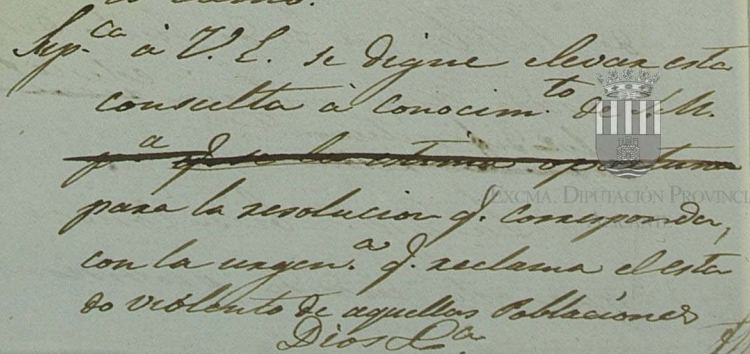 Sup.ca à V. E. se digne elevar esta
consulta à conocim.to de S. M.
p.a q. se la estima oportuna
para la resolucion q. corresponda,
con la urgen.a q. reclama el esta
do violento de aquellas Poblaciones
Dios &a
EXCMA. DIPUTACIÓN PROVINCI